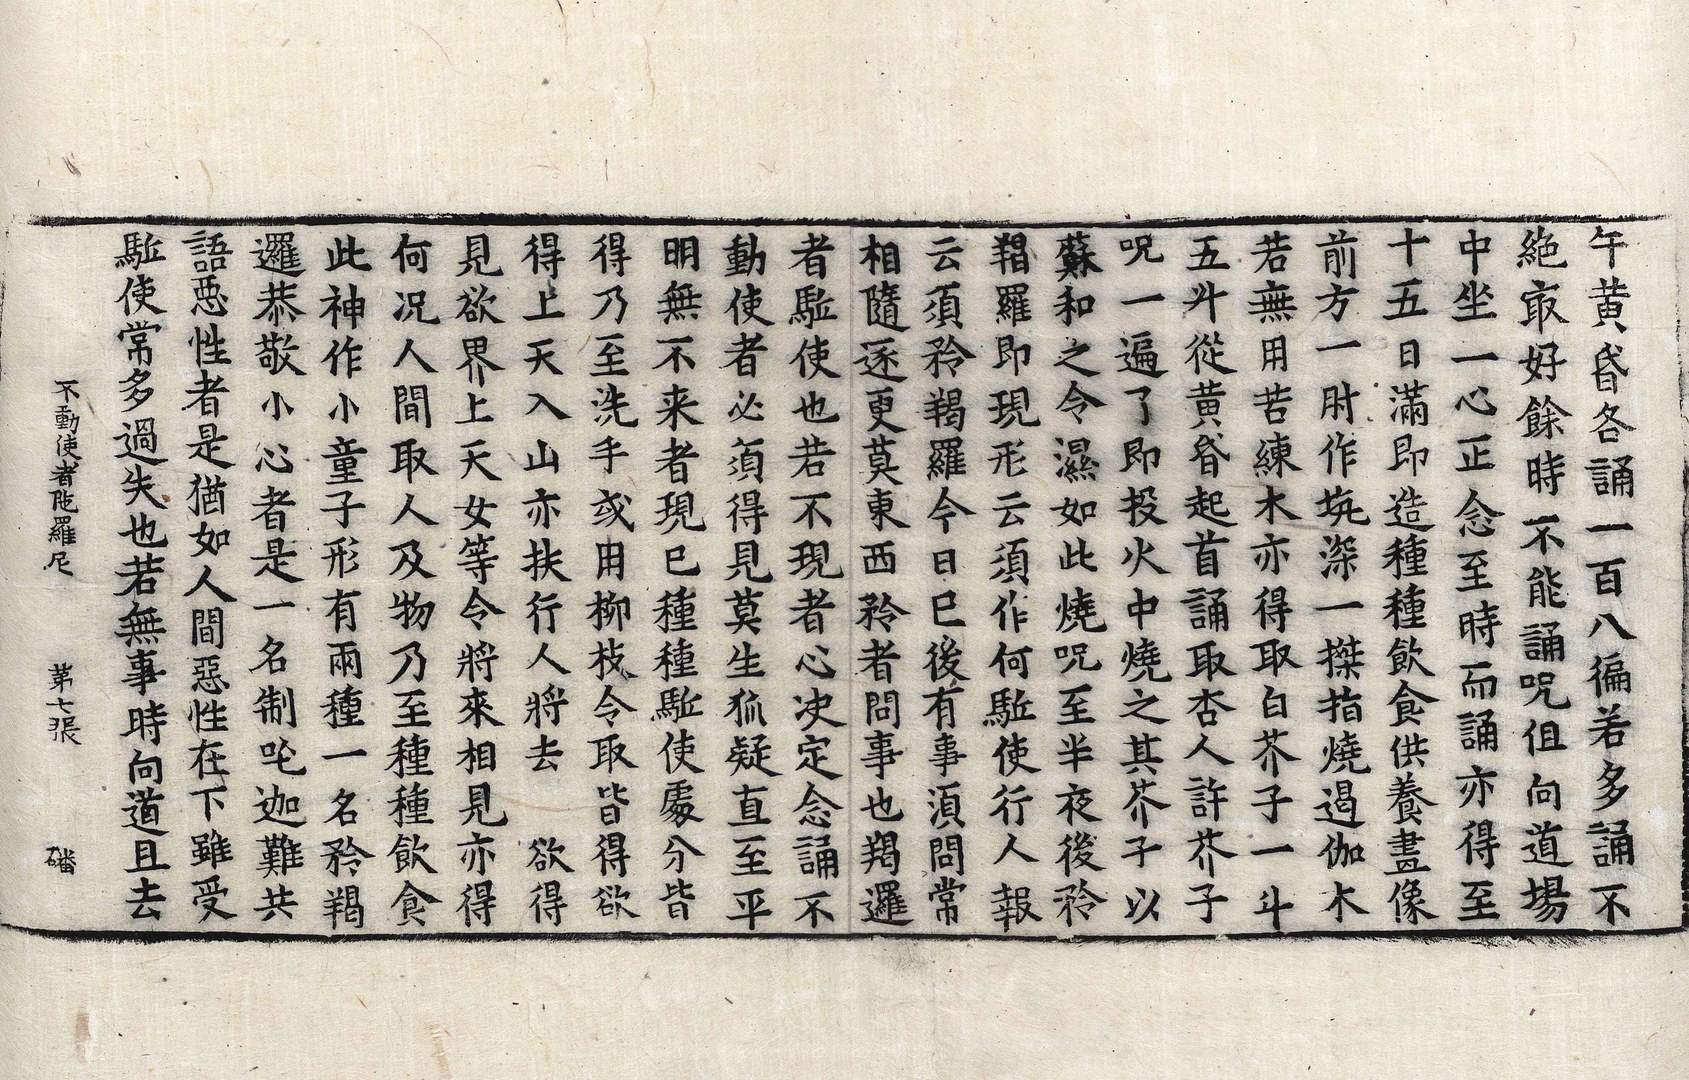 午黄昏各誦一百八徧若多誦不
絶㝡好餘時不能誦呪但向道場
中坐一心正念至時而誦亦得至
十五日滿即造種種飲食供養畫像
前方一肘作坑深一搩指燒遏伽木
若無用苦練木亦得取白芥子一斗
五升從黄昏起首誦取杏人許芥子
呪一遍了即投火中燒之其芥子以
蘇和之令濕如此燒呪至半夜後矜
羯羅即現形云須作何駈使行人報
云須矜羯羅今日巳後有事須問常
相隨逐更莫東西矜者問事也羯邏
者駈使也若不現者心决定念誦不
動使者必須得見莫生狐疑直至平
明無不来者現巳種種駈使處分皆
得乃至洗手或用柳枝令取皆得欲
得上天入山亦扶行人將去　欲得
見欲界上天女等令將來相見亦得
何况人間取人及物乃至種種飲食
此神作小童子形有兩種一名矜羯
邏恭敬小心者是一名制吒迦難共
語惡性者是猶如人間惡性在下雖受
駈使常多過失也若無事時向道且去
不動使者陁羅尼　第七張　磻